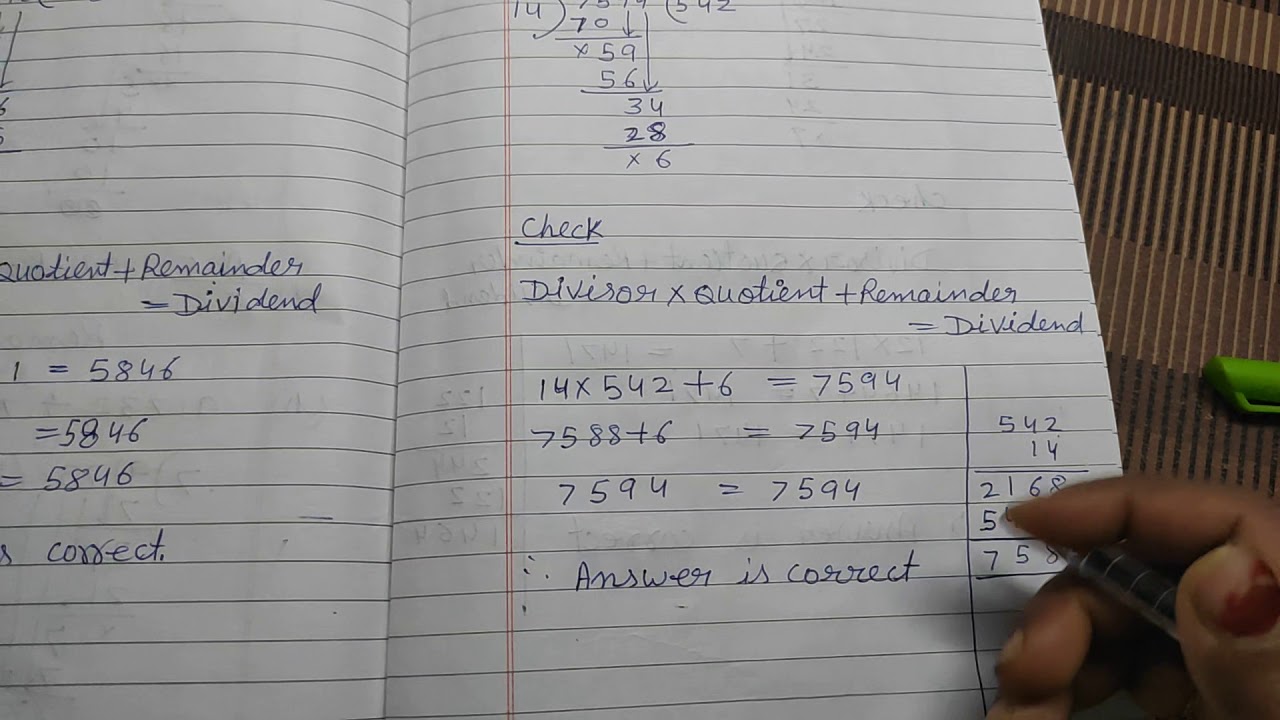 6
Quotient + Remainder
= Dividend
1 = 5846
= 5846
= 5846
correct.
14 ) 7594 ( 542
70
× 59
56
34
28
× 6
Check
Divisor × Quotient + Remainder
= Dividend
14 × 542 + 6 = 7594
7588 + 6 = 7594
7594 = 7594
∴ Answer is correct
542
14
2168
5
758